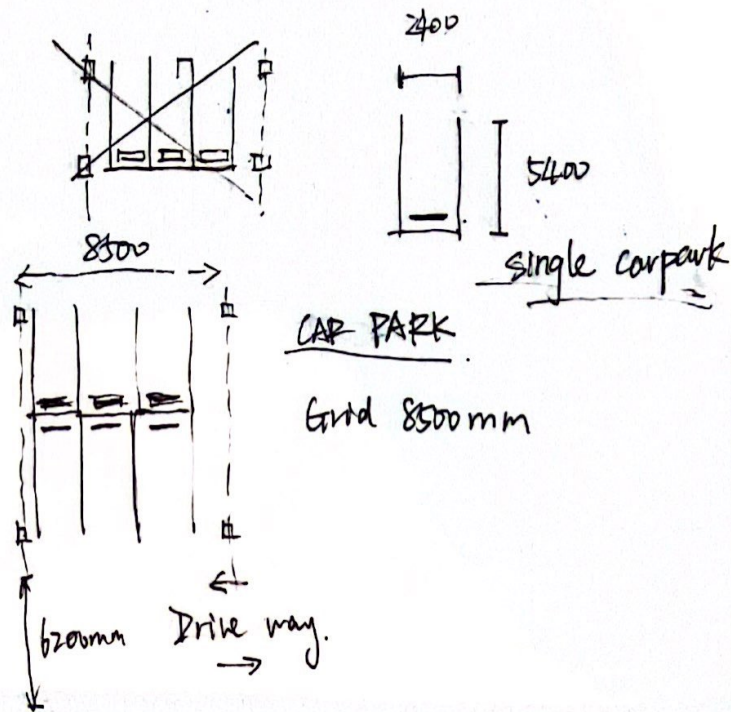 2400
5400
single carpark
8500
CAR PARK
Grid 8500mm
6200mm Drive way.